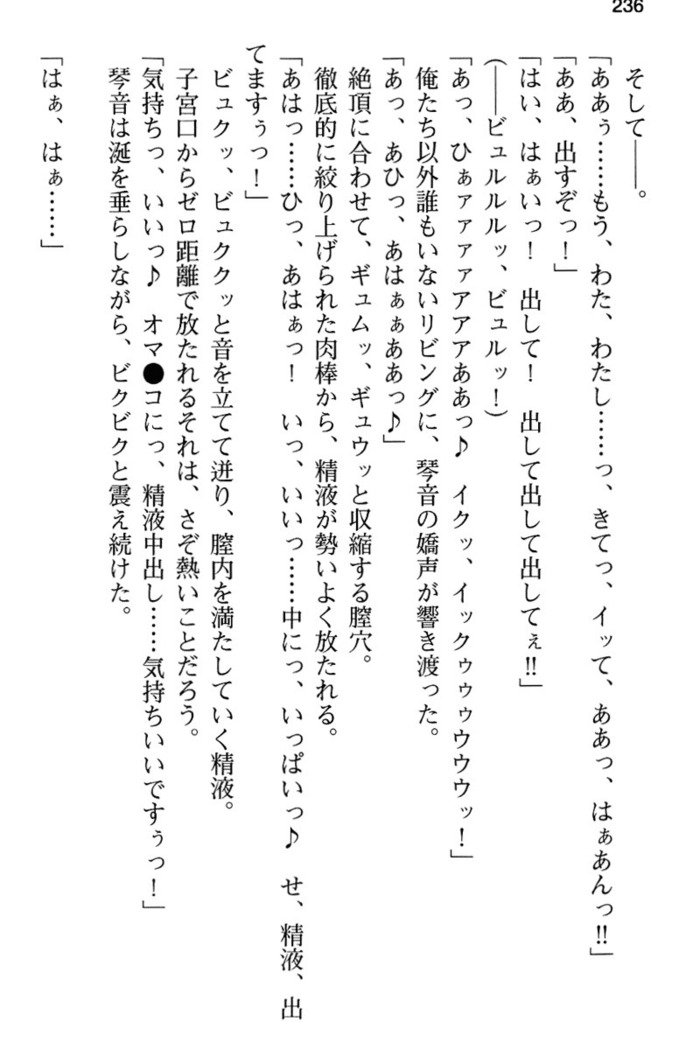 236
そして――。
「ああぅ……もう、わた、わたし……っ、きてっ、イッて、ああっ、はぁあんっ!!」
「ああ、出すぞっ！」
「はい、はぁいっ！　出して！　出して出して出してぇ!!」
(――ビュルルルッ、ビュルッ！)
「あっ、ひぁァァァアアアああっ♪　イクッ、イックゥゥゥウウウッ！」
俺たち以外誰もいないリビングに、琴音の嬌声が響き渡った。
「あっ、あひっ、あはぁぁああっ♪」
絶頂に合わせて、ギュムッ、ギュウッと収縮する膣穴。
徹底的に絞り上げられた肉棒から、精液が勢いよく放たれる。
「あはっ……ひっ、あはぁっ！　いっ、いいっ……中にっ、いっぱいっ♪　せ、精液、出
てますぅっ！」
ビュクッ、ビュククッと音を立てて迸り、膣内を満たしていく精液。
子宮口からゼロ距離で放たれるそれは、さぞ熱いことだろう。
「気持ちっ、いいっ♪　オマ●コにっ、精液中出し……気持ちいいですぅっ！」
琴音は涎を垂らしながら、ビクビクと震え続けた。
「はぁ、はぁ……」